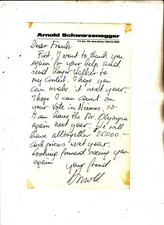 Arnold Schwarzenegger
Dear Frank
First I want to thank you
again for your help and
send Roger Walker to
my Contest. I hope you
Can make it next year.
I hope I can count on
your Vote in Nimes,
I am having the Mr. Olympia
again next year. We will
have alltogether 25000-
cash prices next year.
Looking forward seeing you
again
Your friend
Arnold